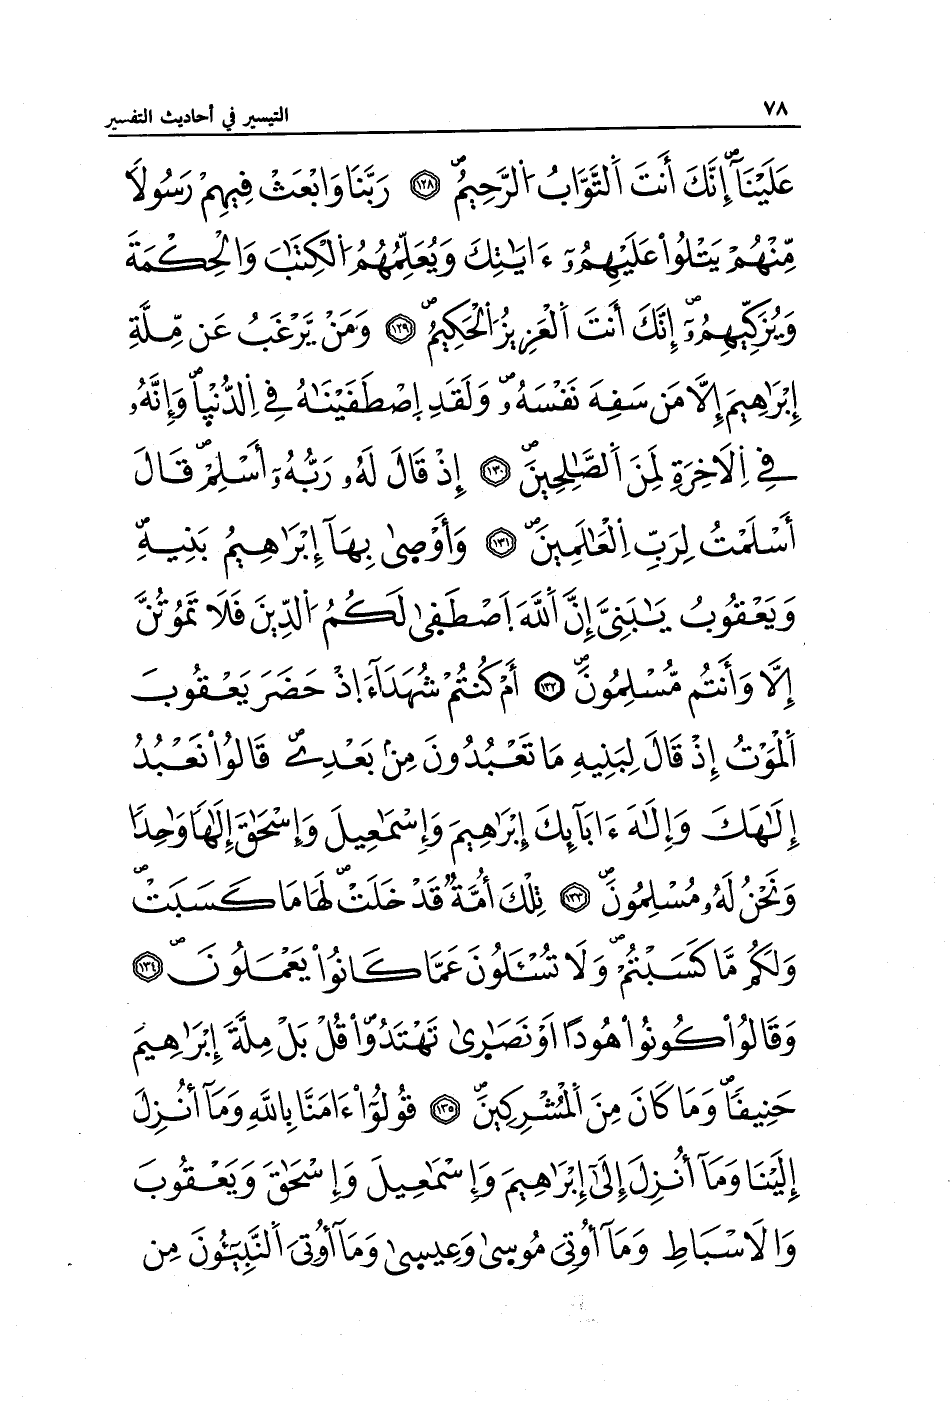 ٧٨
التيسير في أحاديث التفسير
عَلَيْنَآۖ إِنَّكَ أَنتَ اَ۬لتَّوَّابُ اُ۬لرَّحِيمُۖ ١٢٨ رَبَّنَا وَابْعَثْ فِيهِمْ رَسُولاٗ
مِّنْهُمْ يَتْلُواْ عَلَيْهِمُۥٓ ءَايَٰتِكَ وَيُعَلِّمُهُمُ اُ۬لْكِتَٰبَ وَالْحِكْمَةَ
وَيُزَكِّيهِمُۥٓۖ إِنَّكَ أَنتَ اَ۬لْعَزِيزُ اُ۬لْحَكِيمُۖ ١٢٩ وَمَنْ يَّرْغَبُ عَن مِّلَّةِ
إِبْرَٰهِيمَ إِلَّا مَن سَفِهَ نَفْسَهُۥۖ وَلَقَدِ اِ۪صْطَفَيْنَٰهُ فِي اِ۬لدُّنْي۪اۖ وَإِنَّهُۥ
فِي اِ۬لَاخِرَةِ لَمِنَ اَ۬لصَّٰلِحِينَۖ ١٣٠ إِذْ قَالَ لَهُۥ رَبُّهُۥٓ أَسْلِمْۖ قَالَ
أَسْلَمْتُ لِرَبِّ اِ۬لْعَٰلَمِينَۖ ١٣١ وَأَوْص۪يٰ بِهَآ إِبْرَٰهِيمُ بَنِيهِۖ
وَيَعْقُوبُ يَٰبَنِيَّ إِنَّ اَ۬للَّهَ اَ۪صْطَف۪يٰ لَكُمُ اُ۬لدِّينَ فَلَا تَمُوتُنَّ
إِلَّا وَأَنتُم مُّسْلِمُونَۖ ١٣٢ أَمْ كُنتُمْ شُهَدَآءَ اِ۪ذْ حَضَرَ يَعْقُوبَ
اَ۬لْمَوْتُ إِذْ قَالَ لِبَنِيهِ مَا تَعْبُدُونَ مِنۢ بَعْدِيۖ قَالُواْ نَعْبُدُ
إِلَٰهَكَ وَإِلَٰهَ ءَابَآئِكَ إِبْرَٰهِيمَ وَإِسْمَٰعِيلَ وَإِسْحَٰقَ إِلَٰهاٗ وَٰحِداٗ
وَنَحْنُ لَهُۥ مُسْلِمُونَۖ ١٣٣ تِلْكَ أُمَّةٞ قَدْ خَلَتْۖ لَهَا مَا كَسَبَتْۖ
وَلَكُم مَّا كَسَبْتُمْۖ وَلَا تُسْـَٔلُونَ عَمَّا كَانُواْ يَعْمَلُونَۖ ١٣٤
وَقَالُواْ كُونُواْ هُوداً اَوْ نَصَٰر۪يٰ تَهْتَدُواْۖ قُلْ بَلْ مِلَّةَ إِبْرَٰهِيمَ
حَنِيفاٗۖ وَمَا كَانَ مِنَ اَ۬لْمُشْرِكِينَۖ ١٣٥ قُولُوٓاْ ءَامَنَّا بِاللَّهِ وَمَآ أُنزِلَ
إِلَيْنَا وَمَآ أُنزِلَ إِلَيٰٓ إِبْرَٰهِيمَ وَإِسْمَٰعِيلَ وَإِسْحَٰقَ وَيَعْقُوبَ
وَالَاسْبَاطِ وَمَآ أُوتِيَ مُوس۪يٰ وَعِيس۪يٰ وَمَآ أُوتِيَ اَ۬لنَّبِيٓـُٔونَ مِن